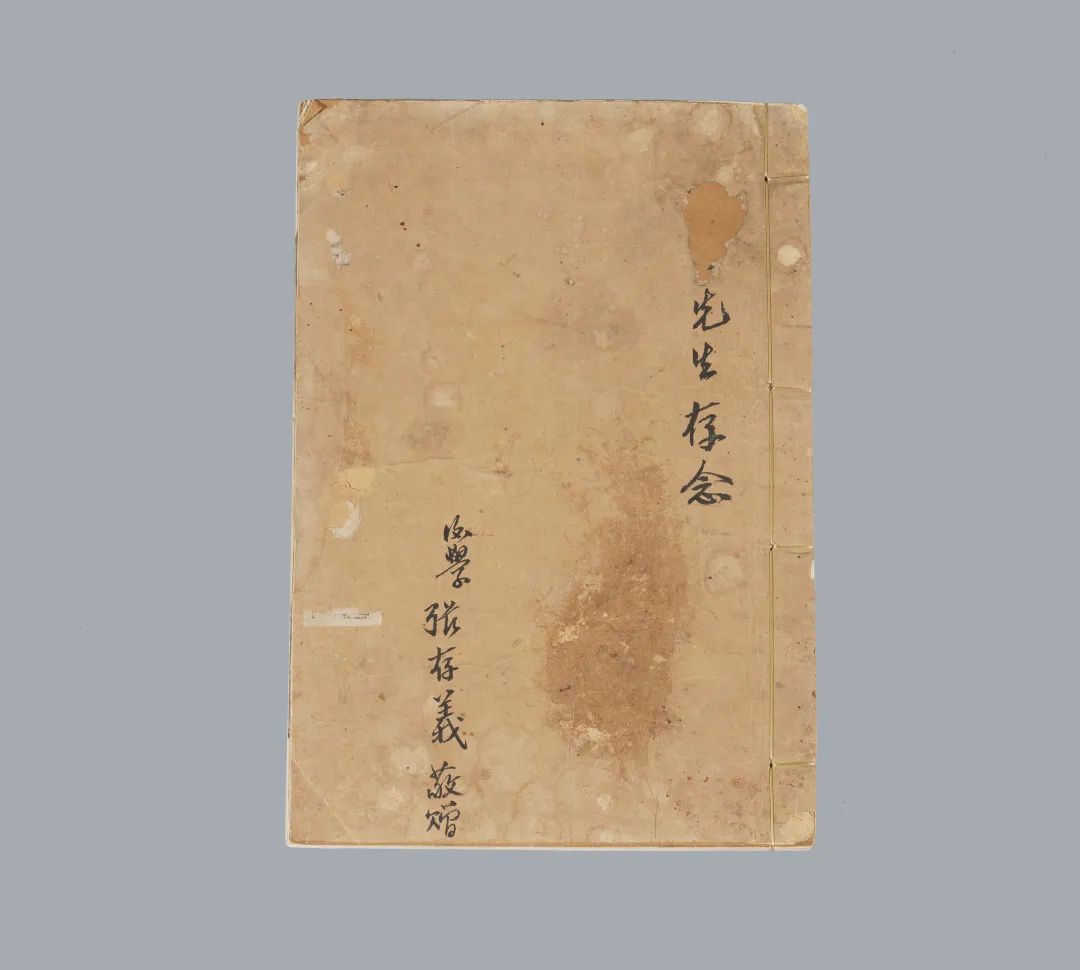 先生存念
後學張存義敬贈